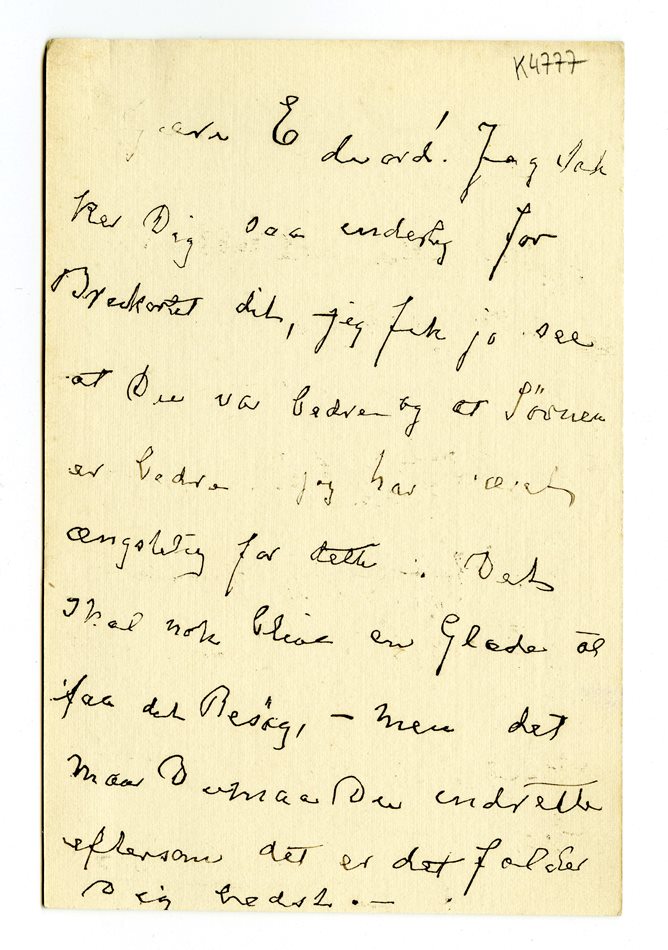 K4777
Kjære Edvard! Jeg tak
ker Dig saa inderlig for
Brevkortet dit, jeg fik jo see
at Du var bedre og at Sövnen
er bedre jeg har været
ængstelig for dette. Det
skal nok blive en Glæde at
faa det Besøg, – men det
maa Du maa Du indrette
eftersom det er det falder
Dig bedst. –